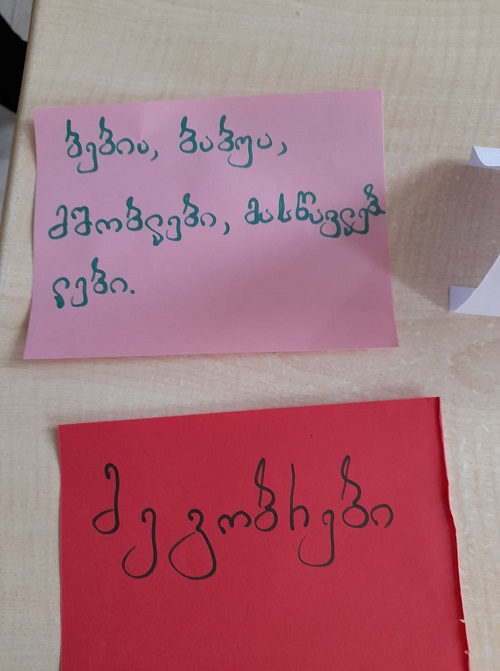 ბებია, ბაბუა,
მშობლები, მასწავლებ
ლები.
მეგობრები